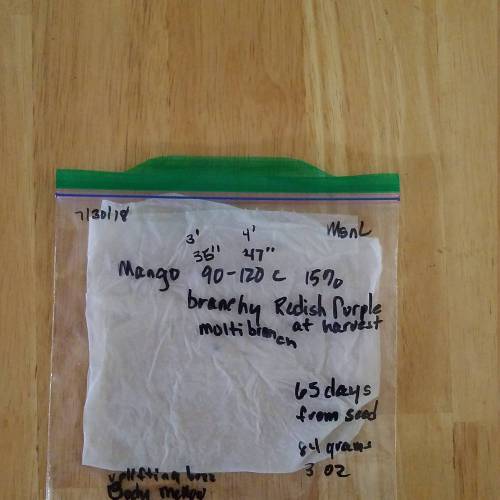 7/30/18
MSNL
3' 4'
35" 47"
Mango 90-120 c 15%
branchy Redish Purple
at harvest
moltibranch
65 days
from seed
84 grams
3 oz
uplifting buzz
Body mellow